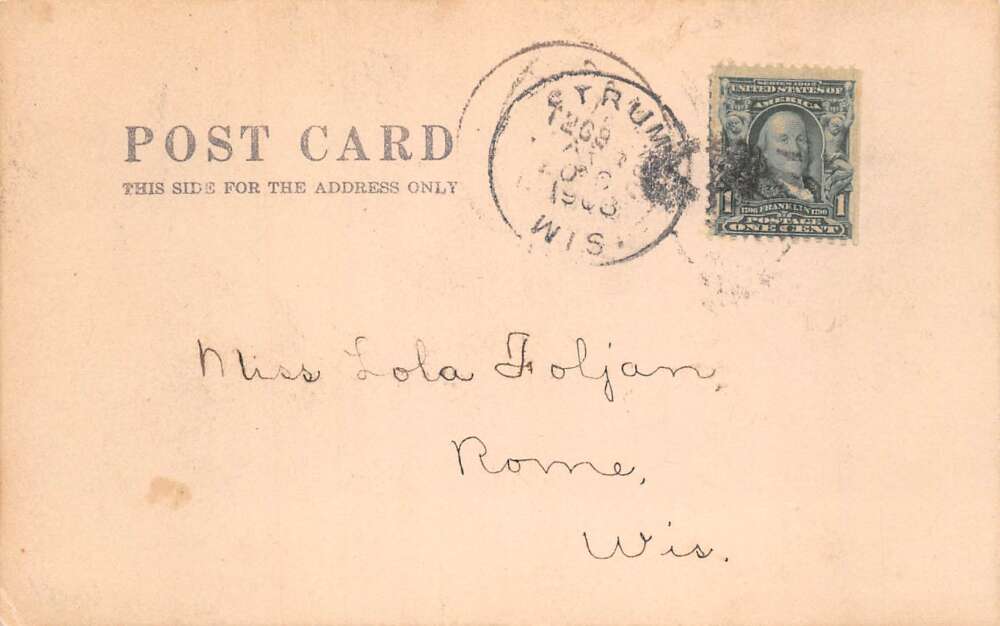 POST CARD
THIS SIDE FOR THE ADDRESS ONLY
STRUM
1908
WIS.
SERIES 1902
UNITED STATES OF
AMERICA
1 1
1706 FRANKLIN 1790
POSTAGE
ONE CENT
Miss Lola Foljan,
Rome,
Wis.